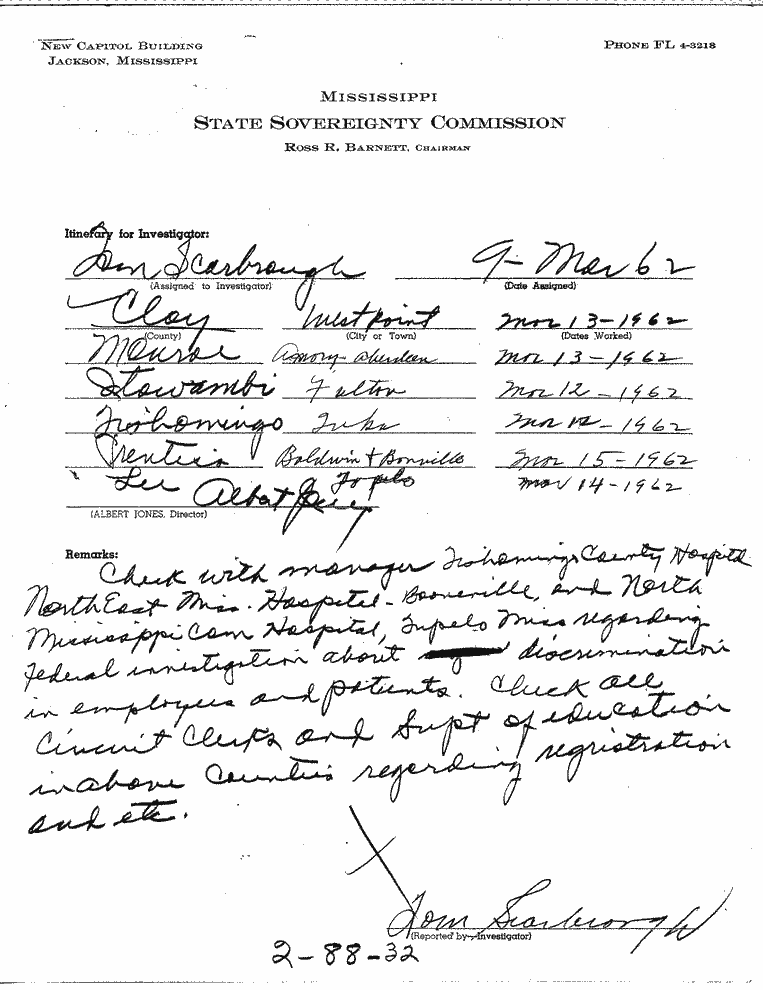 NEW CAPITOL BUILDING
JACKSON, MISSISSIPPI
PHONE FL 4-3218
MISSISSIPPI
STATE SOVEREIGNTY COMMISSION
ROSS R. BARNETT, CHAIRMAN
Itinerary for Investigator:
Tom Scarbrough 9-Mar 62
(Assigned to Investigator) (Date Assigned)
Clay West point Mar 13-1962
(County) (City or Town) (Dates Worked)
Monroe Amory-Aberdeen Mar 13-1962
Itawambi Fulton Mar 12-1962
Tishomingo Iuka Mar 12-1962
Prentiss Baldwin + Bonville Mar 15-1962
Lee Tupelo Mar 14-1962
Albert Jones
(ALBERT JONES, Director)
Remarks:
Check with manager Tishomingo County Hospital
NorthEast Miss. Hospital-Booneville, and North
Mississippi Com Hospital, Tupelo Miss regarding
Federal investigation about discrimination
in employees and patients. Check all
Circuit Clerks and Supt of education
in above Counties regarding registration
and etc.
Tom Scarbrough
(Reported by-Investigator)
2-88-32